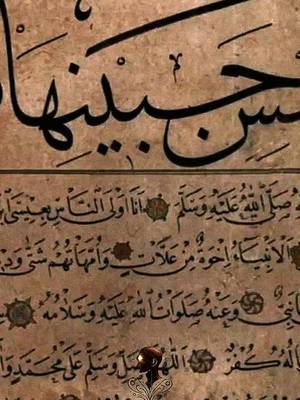 حسن جبينها
صَلَّى اللّٰهُ عَلَيْهِ وَسَلَّمَ اَنَا اَوْلَى النَّاسِ بِعِيسَى
الْاَنْبِيَاءُ اِخْوَةٌ مِنْ عَلَّاتٍ وَاُمَّهَاتُهُمْ شَتَّى
وَعَنْهُ صَلَوَاتُ اللّٰهِ عَلَيْهِ وَسَلَامُهُ
كُفْرٌ اَللّٰهُمَّ صَلِّ وَسَلِّمْ عَلَى مُحَمَّدٍ